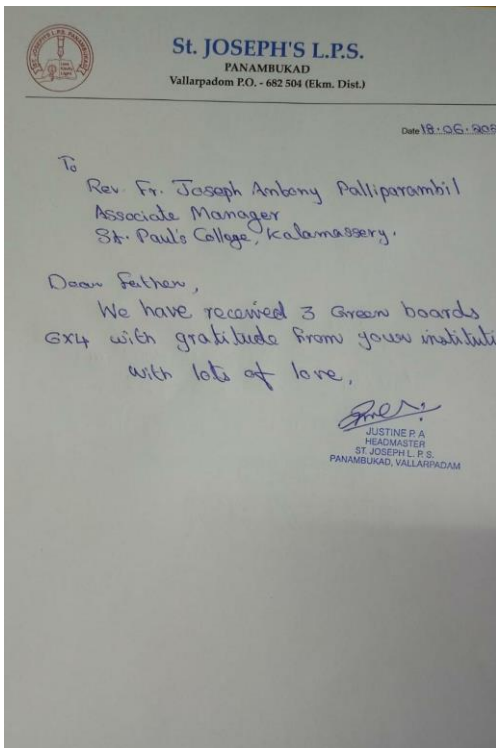 St. JOSEPH'S L.P.S.
PANAMBUKAD
Vallarpadom P.O. - 682 504 (Ekm. Dist.)
Date 18.06.
To
Rev. Fr. Joseph Antony Palliparambil
Associate Manager
St. Paul's College, Kalamassery.
Dear Father,
We have received 3 Green boards
6x4 with gratitude from your instituti
with lots of love,
JUSTINE P. A
HEADMASTER
ST. JOSEPH L. P. S.
PANAMBUKAD, VALLARPADAM